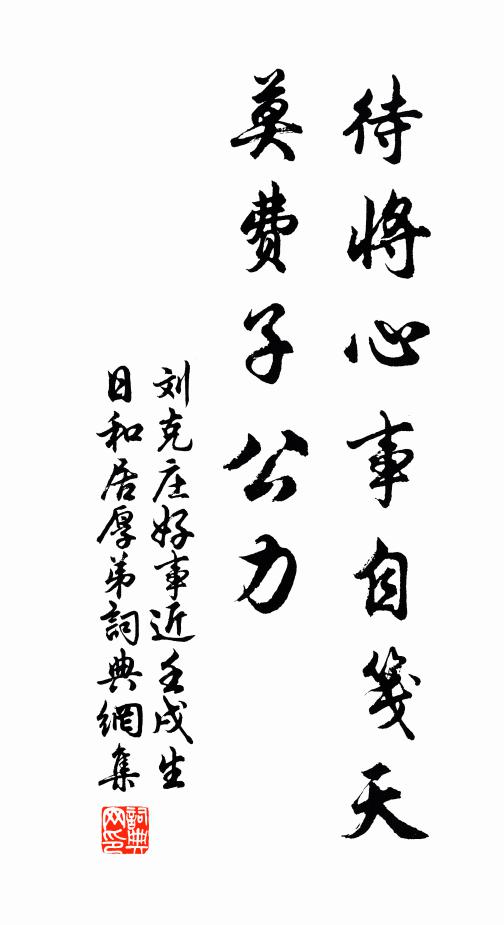 待將心事自箋天
莫费子公力
刘克庄好事近壬戌生
日和居厚弟詞典網集
詞典网印